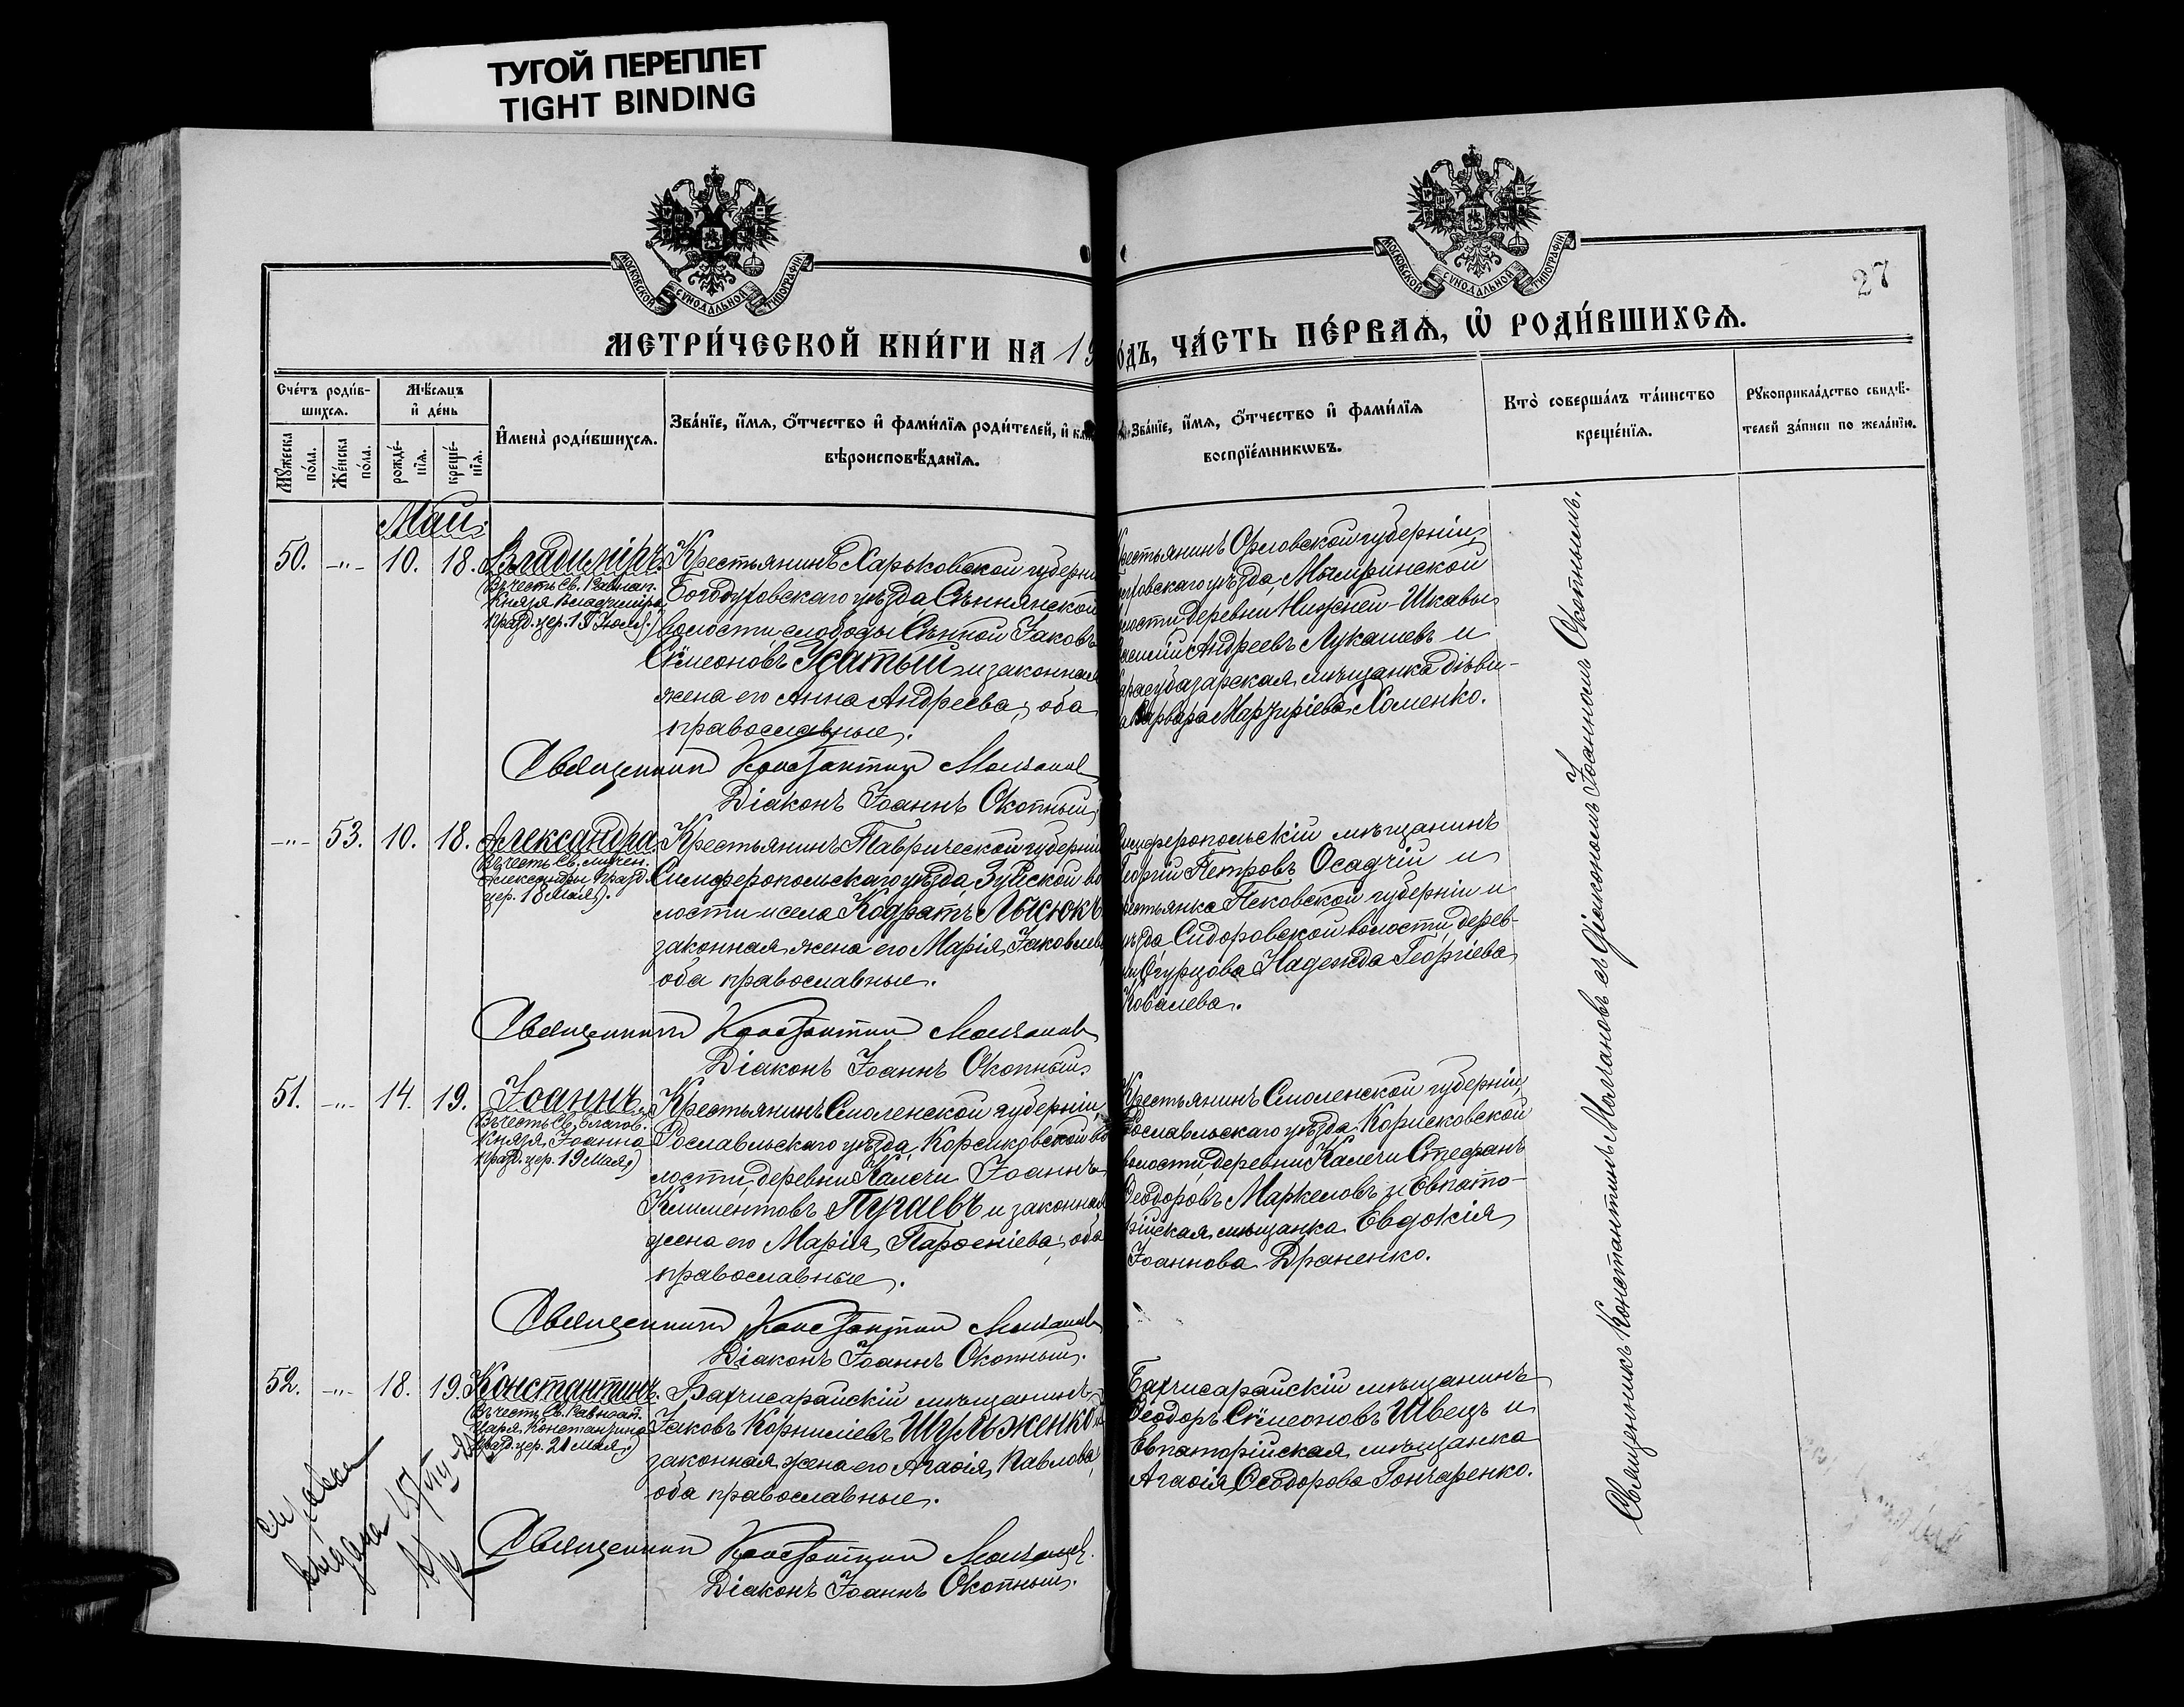 ТУГОЙ ПЕРЕПЛЕТ
TIGHT BINDING
МОСКОВСКОЙ СѴНОДАЛЬНОЙ ТИПОГРАФІИ
МОСКОВСКОЙ СѴНОДАЛЬНОЙ ТИПОГРАФІИ
27
МЕТРИ́ЧЕСКОЙ КНИ́ГИ НА 19
О́ДЪ, ЧА́СТЬ ПЕ́РВАѦ, Ѡ҆ РОДИ́ВШИХСѦ.
Сче́тъ роди́в-
шихсѧ.
Мꙋ́жеска по́ла.
Же́нска по́ла.
Мѣ́сѧцъ
и҆ де́нь
рожде́-
нїѧ.
креще́-
нїѧ.
И҆мена̀ роди́вшихсѧ.
Зва́нїе, и҆́мѧ, ѻ҆́тчество и҆ фами́лїѧ роди́телей, и҆
вѣроисповѣ́данїѧ.
Зва́нїе, и҆́мѧ, ѻ҆́тчество и҆ фами́лїѧ
воспрїе́мникѡвъ.
Кто̀ соверша́лъ та́инство
креще́нїѧ.
Рꙋкоприкла́дство свидѣ́-
телей за́писи по жела́нїю.
Май.
50. -"- 10. 18. Владиміръ
(Въ честь Св. Равноап.
Князя Владиміра
празд. цер. 15 Іюля).
Крестьянинъ Харьковской губерніи
Богодуховскаго уѣзда, Сѣннянской
волости слободы Сѣнной Іаковъ
Сѵмеоновъ Усатый и законная
жена его Анна Андреева; оба
православные.
Священникъ Константинъ Молчановъ
Діаконъ Іоаннъ Окопный.
рестьянинъ Орловской губерніи,
уѣзда, Мымринской
лости деревни Нижней-Шкавы
Андреевъ Лукашевъ и
арасубазарская мѣщанка дѣви-
а Варвара Хоменко.
-"- 53. 10. 18. Александра
(Въ честь Св. мучен.
Александры празд.
цер. 18 Мая).
Крестьянинъ Таврической губерніи
Симферопольскаго уѣзда, Зуйской во
лости и села Кодратъ Лысюкъ
законная жена его Марія Іаковлева
оба православные.
Священникъ Константинъ Молчановъ
Діаконъ Іоаннъ Окопный.
имферопольскій мѣщанинъ
еоргій Петровъ Осадчій и
рестьянка Псковской губерніи и
уѣзда Сидоровской волости, дерев-
ни Огурцова Надежда Георгіева
Ковалева.
51. -"- 14. 19. Іоаннъ
(Въ честь Св. благов.
Князя Іоанна
празд. цер. 19 Мая.)
Крестьянинъ Смоленской губерніи,
Рославльскаго уѣзда, Корсиковской во
лости, деревни Калечи Іоаннъ
Климентовъ Пугаевъ и законная
жена его Марія Парѳеніева; оба
православные.
Священникъ Константинъ Молчановъ
Діаконъ Іоаннъ Окопный.
Крестьянинъ Смоленской губерніи,
Рославльскаго уѣзда Корсиковской
волости, деревни Калечи Стефанъ
Ѳеодоровъ Маркеловъ и Евпато-
рійская мѣщанка Евдокія
Іоаннова Драненко.
52. -"- 18. 19. Константинъ.
(Въ честь Св. Равноап.
Царя Константина
празд. цер. 21 Мая.)
Бахчисарайскій мѣщанинъ
Іаковъ Корниліевъ Шульженко и
законная жена его Агаѳія Павлова;
оба православные.
Священникъ Константинъ Молчановъ.
Діаконъ Іоаннъ Окопный.
Бахчисарайскій мѣщанинъ
Ѳеодоръ Сѵмеоновъ Швецъ и
Евпаторійская мѣщанка
Агаѳія Ѳеодорова Гончаренко.
Священникъ Константинъ Молчановъ съ діакономъ Іоанномъ Окопнымъ.
выдана